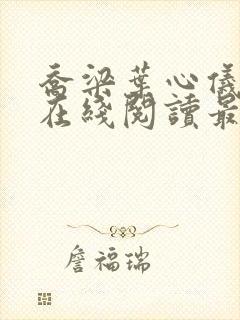 喬梁葉心儀
在綫閱讀最
詹福瑞